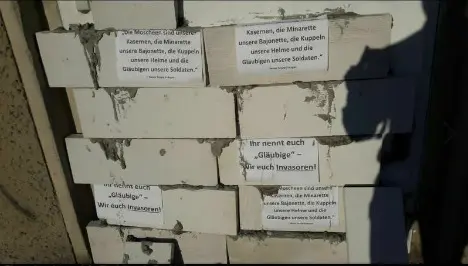 „Die Moscheen sind unsere
Kasernen, die Minarette
unsere Bajonette, die Kuppeln
unsere Helme und die
Gläubigen unsere Soldaten.“
Kasernen, die Minarette
unsere Bajonette, die Kuppeln
unsere Helme und die
Gläubigen unsere Soldaten.“
Ihr nennt euch
„Gläubige“ –
Wir euch Invasoren!
Ihr nennt euch
„Gläubige“ –
Wir euch Invasoren!
Moscheen sind unsere
Kasernen, die Minarette
unsere Bajonette, die Kuppeln
unsere Helme und die
Gläubigen unsere Soldaten.“